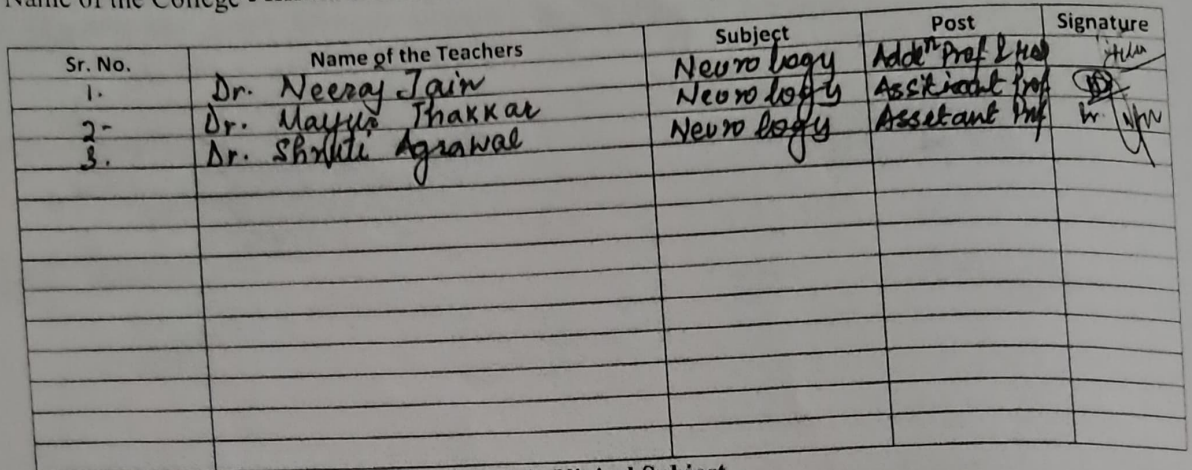 Name of the College
Sr. No. Name of the Teachers Subject Post Signature
1. Dr. Neeraj Jain Neurology Addeⁿ Prof & Hod
2- Dr. Mayur Thakkar Neurology Assitiant Prof
3. Dr. Shruti Agrawal Neurology Assetant Prof
Subject